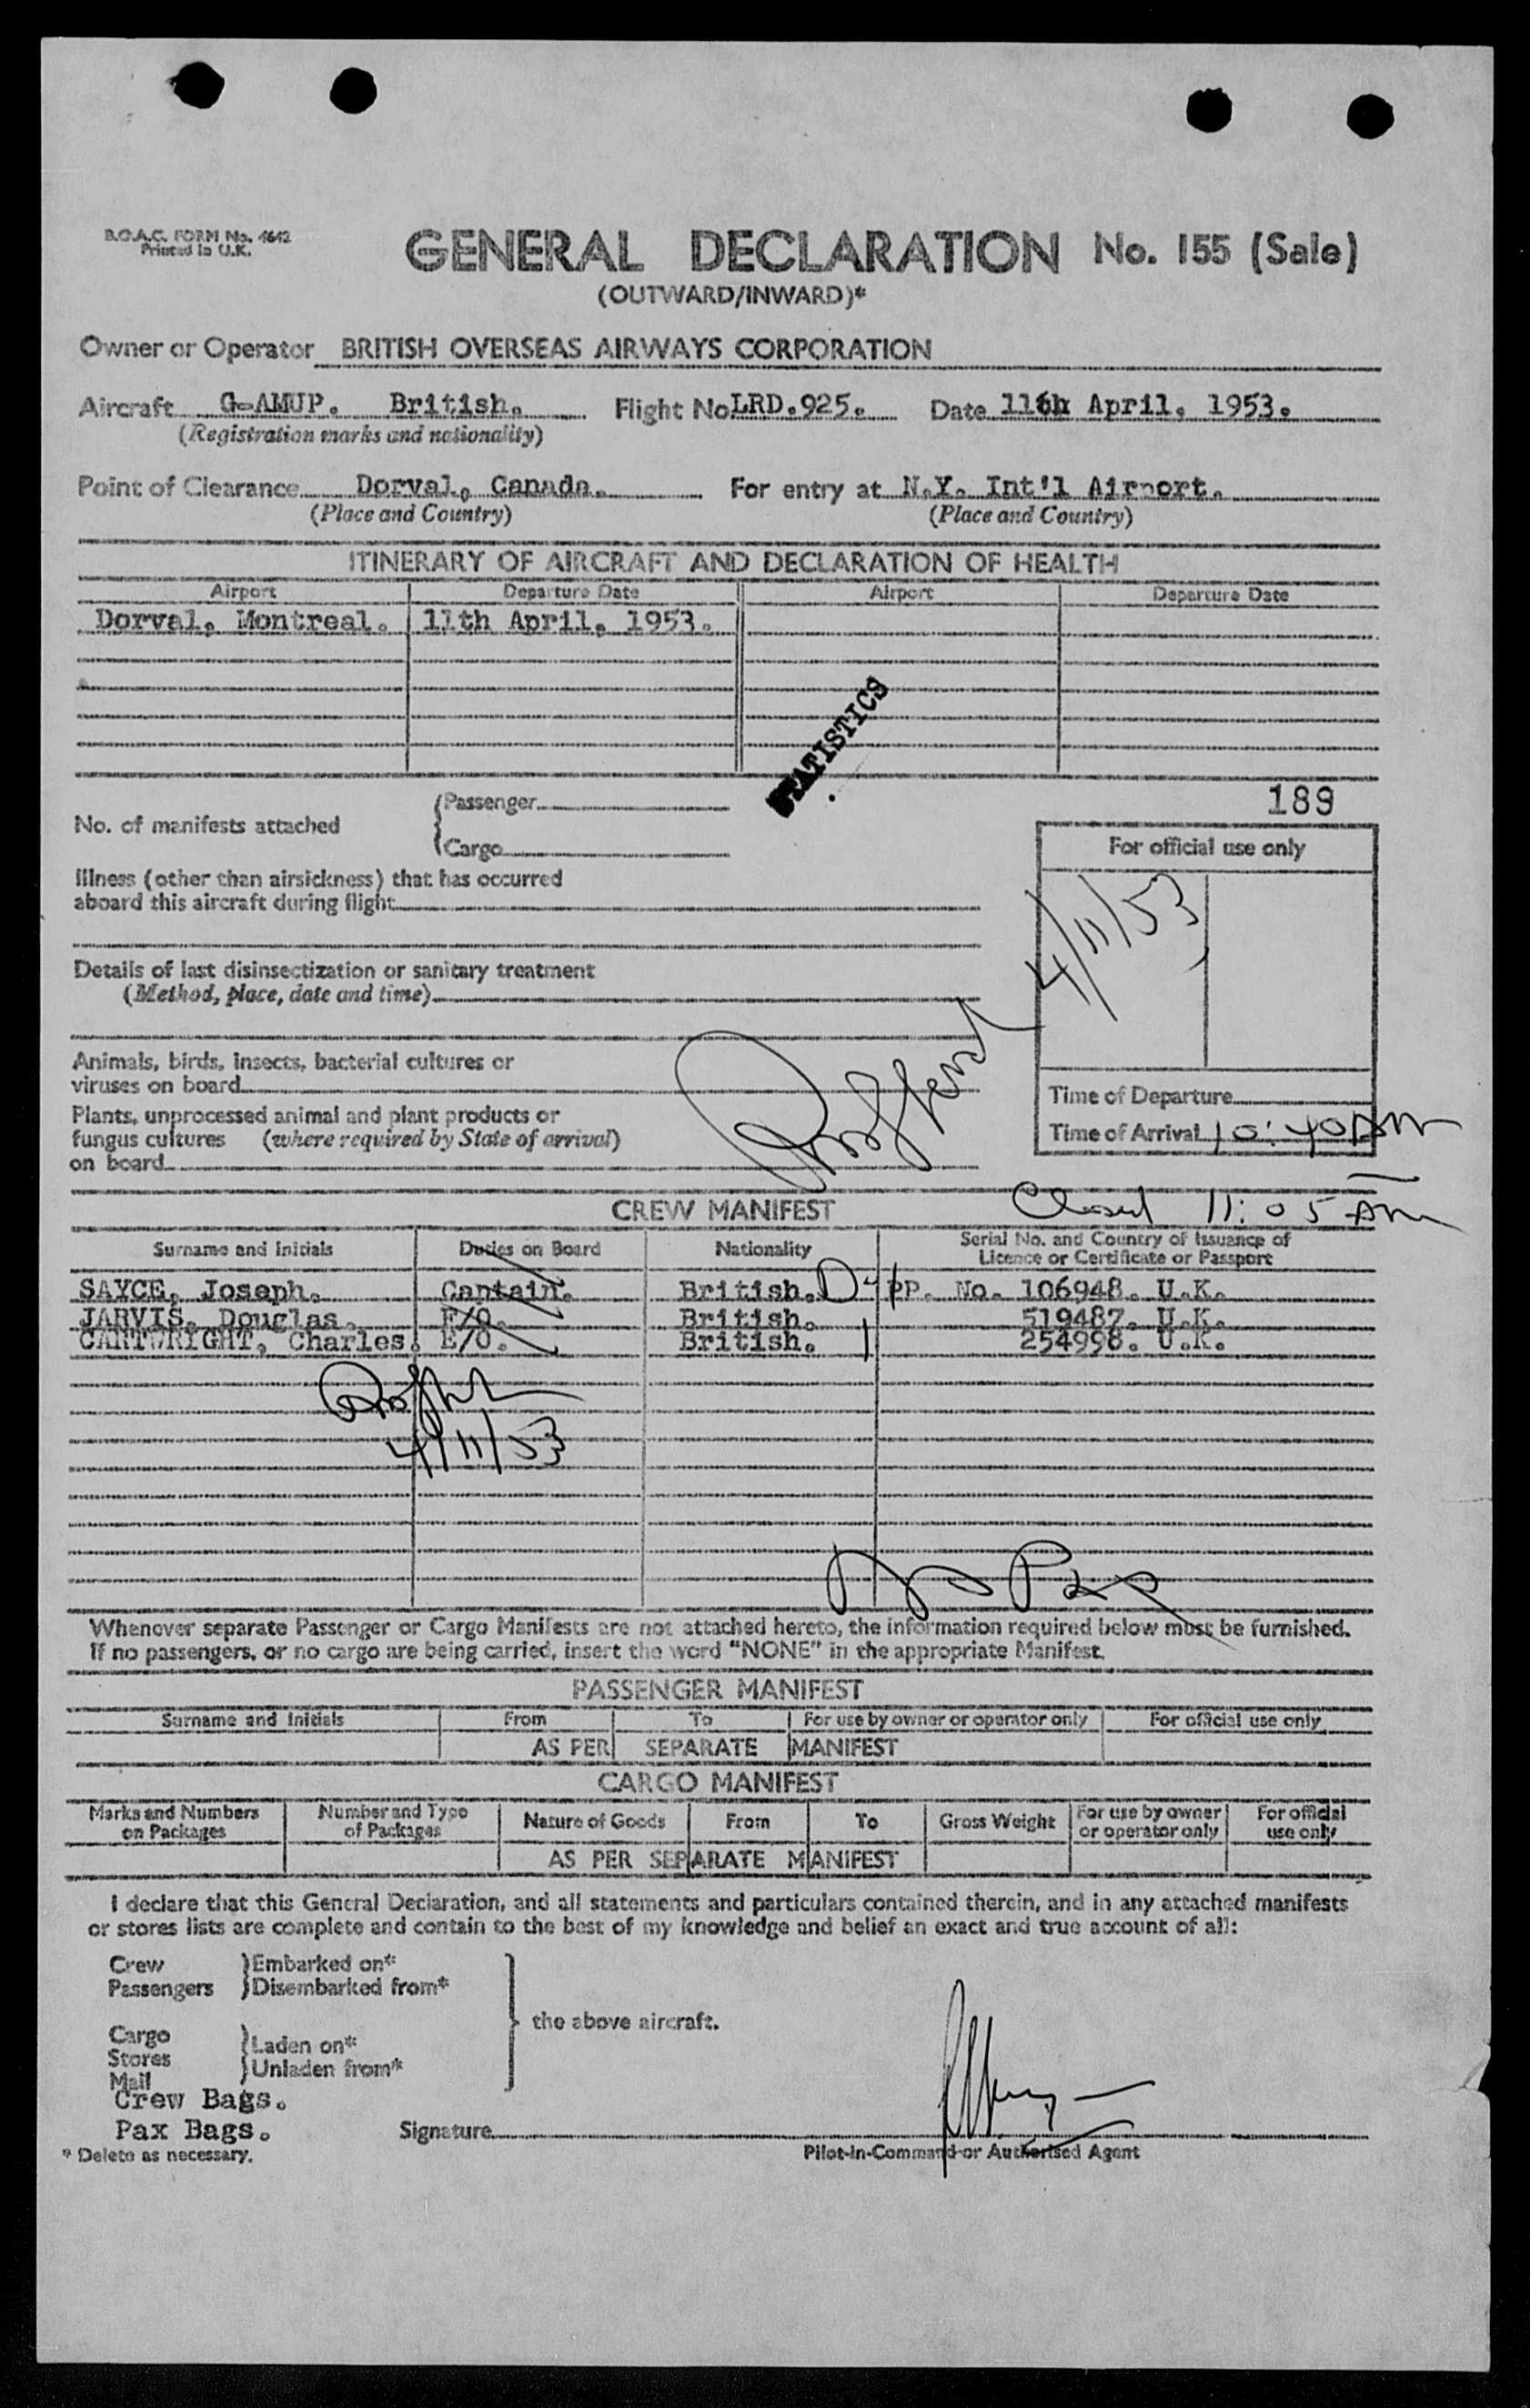 B.O.A.C. FORM No. 4642
Printed in U.K.
GENERAL DECLARATION No. 155 (Sale)
(OUTWARD/INWARD)*
Owner or Operator BRITISH OVERSEAS AIRWAYS CORPORATION
Aircraft G-AMUP. British. Flight No LRD.925. Date 11th April, 1953.
(Registration marks and nationality)
Point of Clearance Dorval, Canada. For entry at N.Y. Int'l Airport.
(Place and Country) (Place and Country)
ITINERARY OF AIRCRAFT AND DECLARATION OF HEALTH
Airport Departure Date Airport Departure Date
Dorval, Montreal. 11th April, 1953.
STATISTICS
189
No. of manifests attached
Passenger
Cargo
For official use only
4/11/53
Illness (other than airsickness) that has occurred
aboard this aircraft during flight
Details of last disinsectization or sanitary treatment
(Method, place, date and time)
Animals, birds, insects, bacterial cultures or
viruses on board
Plants, unprocessed animal and plant products or
fungus cultures (where required by State of arrival)
on board
Time of Departure
Time of Arrival 10:40 AM
Closed 11:05 AM
CREW MANIFEST
Surname and Initials Duties on Board Nationality Serial No. and Country of Issuance of
Licence or Certificate or Passport
SAYCE, Joseph. Captain. British. PP. No. 106948. U.K.
JARVIS, Douglas. F/O. British. 519487. U.K.
CARTWRIGHT, Charles. E/O. British. 254998. U.K.
4/11/53
No Pax
Whenever separate Passenger or Cargo Manifests are not attached hereto, the information required below must be furnished.
If no passengers, or no cargo are being carried, insert the word "NONE" in the appropriate Manifest.
PASSENGER MANIFEST
Surname and Initials From To For use by owner or operator only For official use only
AS PER SEPARATE MANIFEST
CARGO MANIFEST
Marks and Numbers on Packages Number and Type of Packages Nature of Goods From To Gross Weight For use by owner or operator only For official use only
AS PER SEPARATE MANIFEST
I declare that this General Declaration, and all statements and particulars contained therein, and in any attached manifests
or stores lists are complete and contain to the best of my knowledge and belief an exact and true account of all:
Crew Embarked on*
Passengers Disembarked from*
the above aircraft.
Cargo Laden on*
Stores Unladen from*
Mail
Crew Bags.
Pax Bags.
Signature
* Delete as necessary.
Pilot-in-Command or Authorised Agent